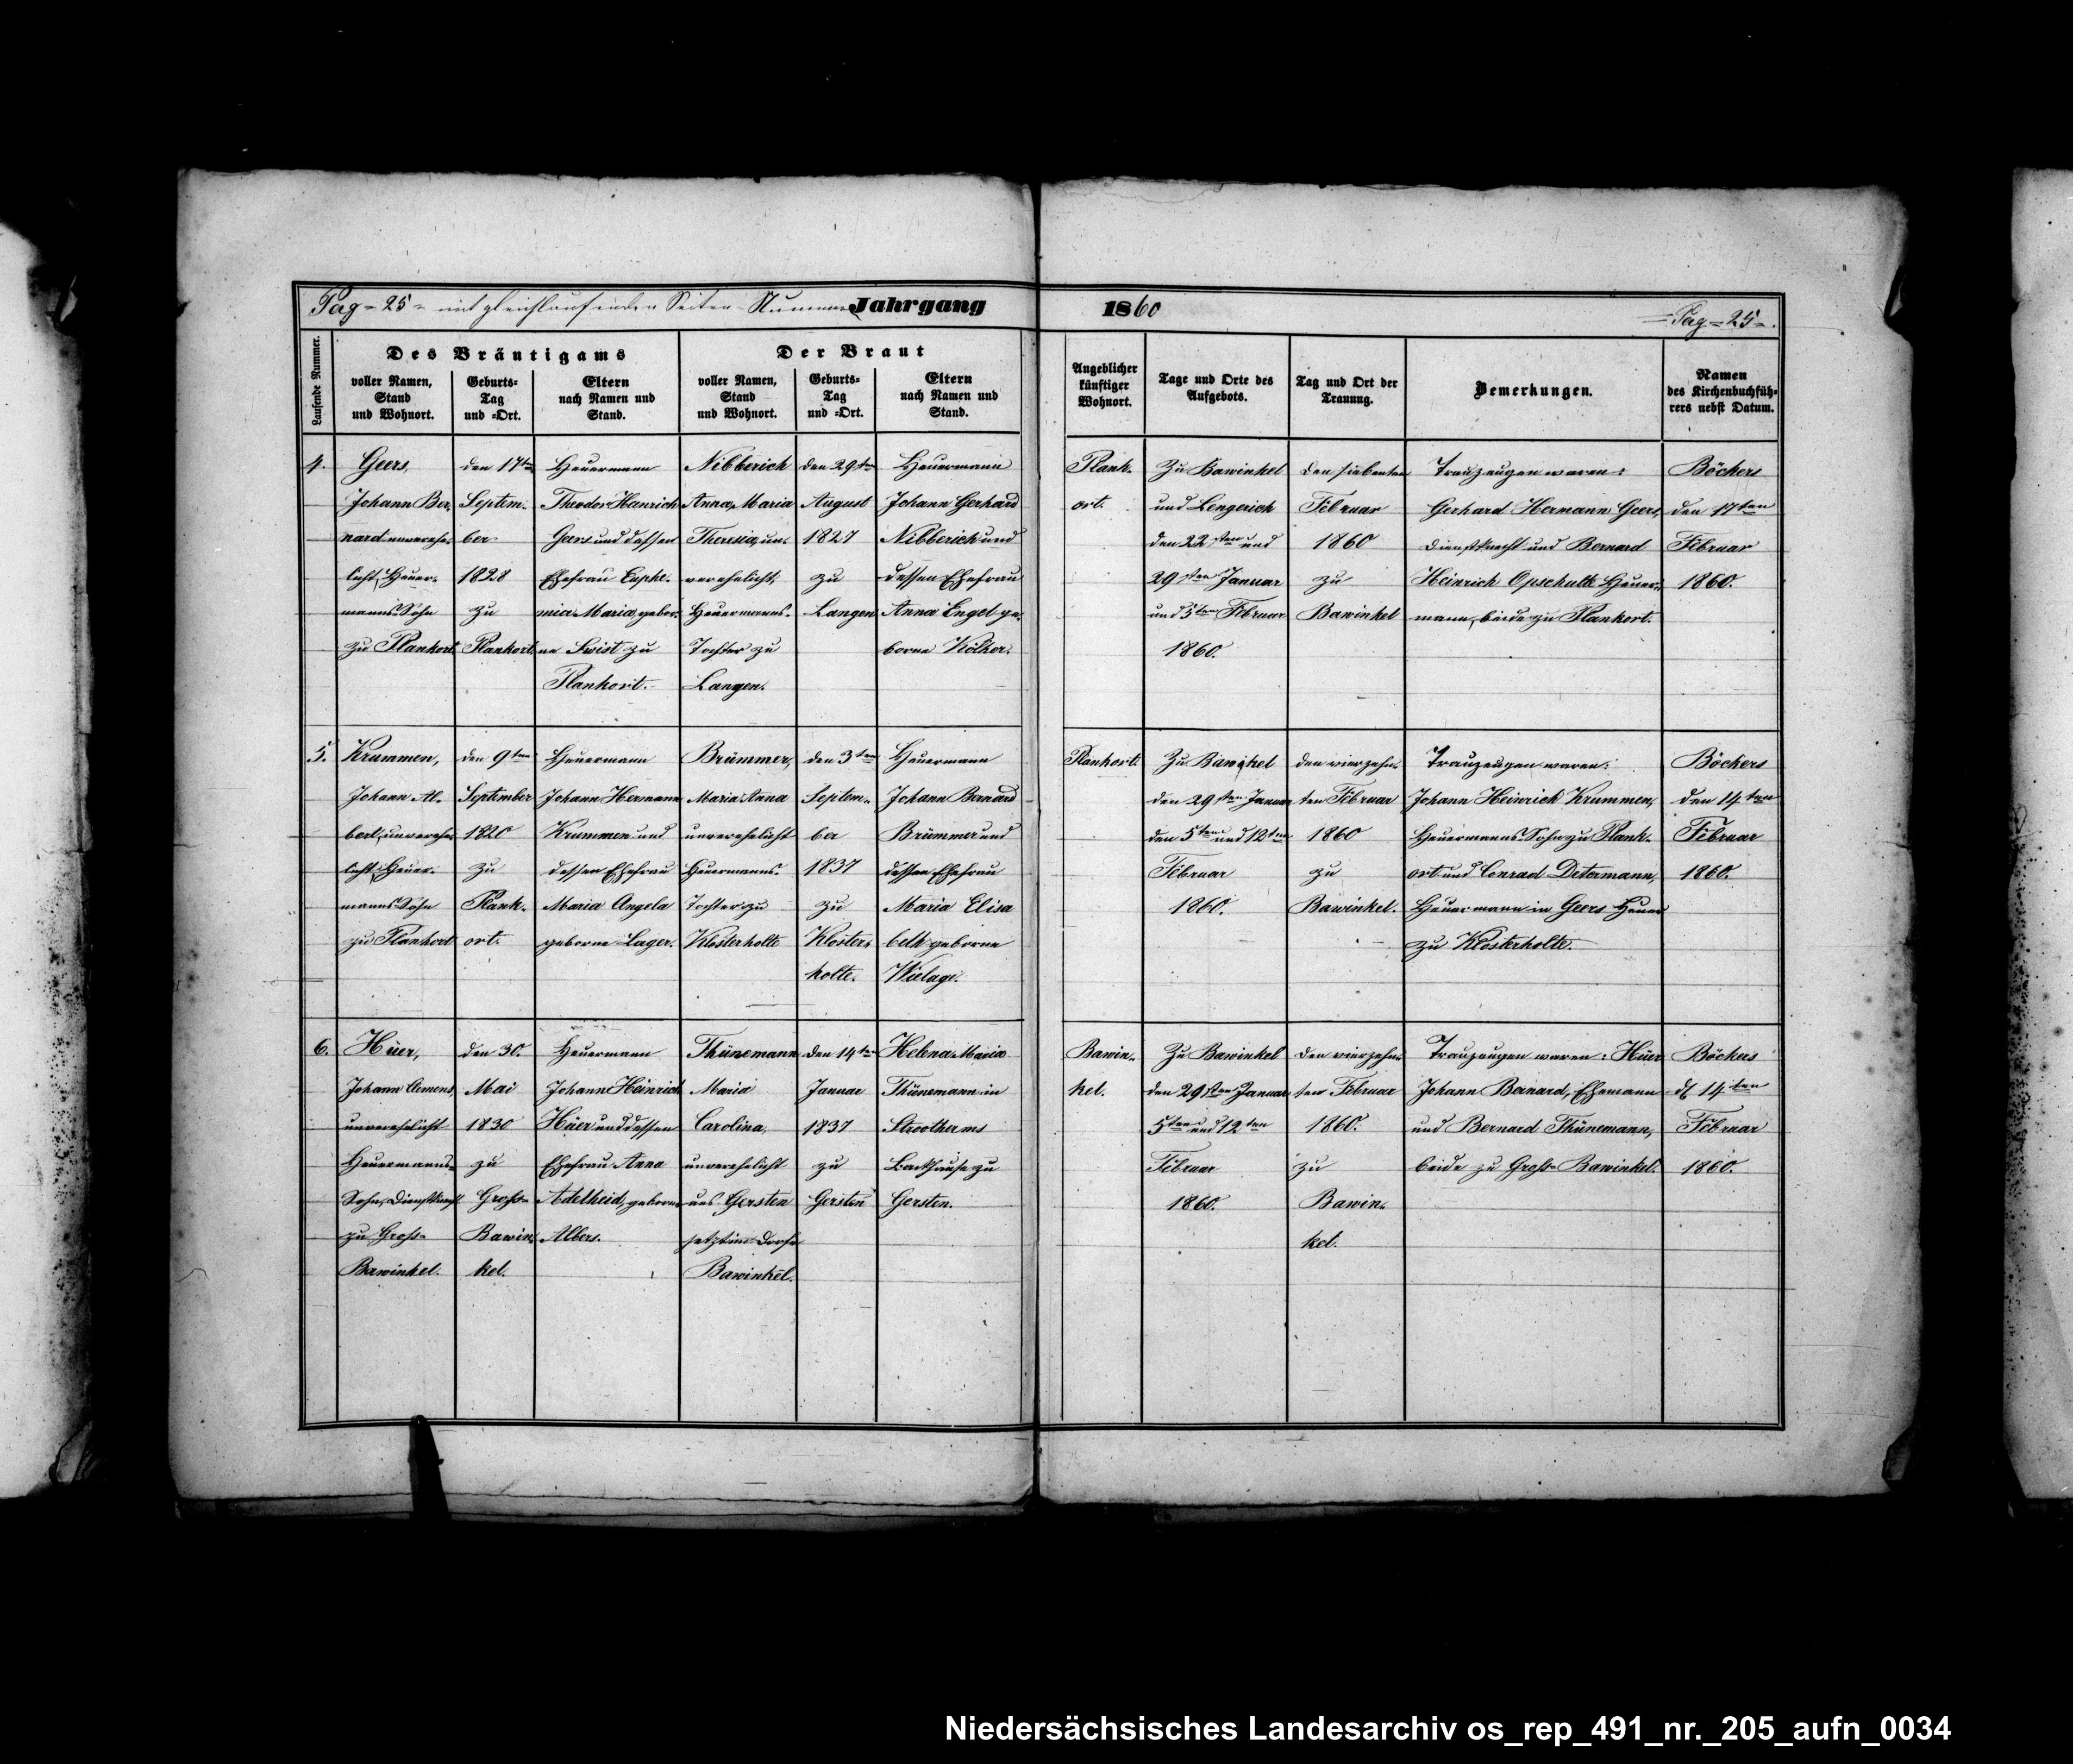 Pag = 25 = mit gleichlaufenden Seiten-Nummern Jahrgang 1860 = Pag = 25 =.
Laufende Nummer.
Des Bräutigams
voller Namen,
Stand
und Wohnort.
Geburts-
Tag
und =Ort.
Eltern
nach Namen und
Stand.
Der Braut
voller Namen,
Stand
und Wohnort.
Geburts-
Tag
und =Ort.
Eltern
nach Namen und
Stand.
Angeblicher
künftiger
Wohnort.
Tage und Orte des
Aufgebots.
Tag und Ort der
Trauung.
Bemerkungen.
Namen
des Kirchenbuchfüh-
rers nebst Datum.
4.
Geers,
Johann Ber-
nard unverehe-
licht, Heuer-
manns-Sohn
zu Plankort.
den 17ten
Septem-
ber
1828
zu
Plankort.
Heuermann
Theodor Heinrich
Geers und dessen
Ehefrau Euphe-
mia Maria, gebor-
ne Swist zu
Plankort.
Nibberich
Anna Maria
Theresia, un-
verehelicht,
Heuermanns-
Tochter zu
Langen.
den 29ten
August
1827
zu
Langen
Heuermann
Johann Gerhard
Nibberich und
dessen Ehefrau
Anna Engel ge-
borne Kölker.
Plank-
ort.
Zu Bawinkel
und Lengerich
den 22sten und
29sten Januar
und 5ten Februar
1860.
den siebenten
Februar
1860
zu
Bawinkel
Trauzeugen waren:
Gerhard Hermann Geers,
Dienstknecht und Bernard
Heinrich Opschulte Heuer-
mann, beide zu Plankort.
Böckers
den 17ten
Februar
1860.
5.
Krummen,
Johann Al-
bert, unverehe-
licht, Heuer-
manns-Sohn
zu Plankort
den 9ten
September
1820
zu
Plank-
ort.
Heuermann
Johann Hermann
Krummen und
dessen Ehefrau
Maria Angela
geborne Lager.
Brümmer,
Maria Anna
unverehelicht
Heuermanns-
Tochter zu
Klosterholte
den 3ten
Septem-
ber
1837
zu
Kloster-
holte.
Heuermann
Johann Bernard
Brümmer und
dessen Ehefrau
Maria Elisa
beth geborne
Wielage.
Plankort.
Zu Bawinkel
den 29sten Januar
den 5ten und 12ten
Februar
1860.
den vierzehn-
ten Februar
1860
zu
Bawinkel.
Trauzeugen waren:
Johann Heinrich Krummen,
Heuermanns-Sohn zu Plank-
ort und Conrad Determann,
Heuermann in Geers Heuer
zu Klosterholte.
Böckers
den 14ten
Februar
1860.
6.
Hüer,
Johann Clemens,
unverehelicht
Heuermanns-
Sohn, Dienstknecht
zu Groß-
Bawinkel.
den 30.
Mai
1830
zu
Groß-
Bawin-
kel.
Heuermann
Johann Heinrich
Hüer und dessen
Ehefrau Anna
Adelheid, geborne
Albers.
Thünemann
Maria
Carolina,
unverehelicht
aus Gersten
jetzt im Dorfe
Bawinkel.
den 14ten
Januar
1837
zu
Gersten
Helena Maria
Thünemann in
Strootherms
Backhause zu
Gersten.
Bawin-
kel.
Zu Bawinkel
den 29sten Januar
5ten und 12ten
Februar
1860.
den vierzehn-
ten Februar
1860.
zu
Bawin-
kel.
Trauzeugen waren: Hüer
Johann Bernard, Ehemann
und Bernard Thünemann,
beide zu Groß-Bawinkel.
Böckers
d. 14ten
Februar
1860.
Niedersächsisches Landesarchiv os_rep_491_nr._205_aufn_0034